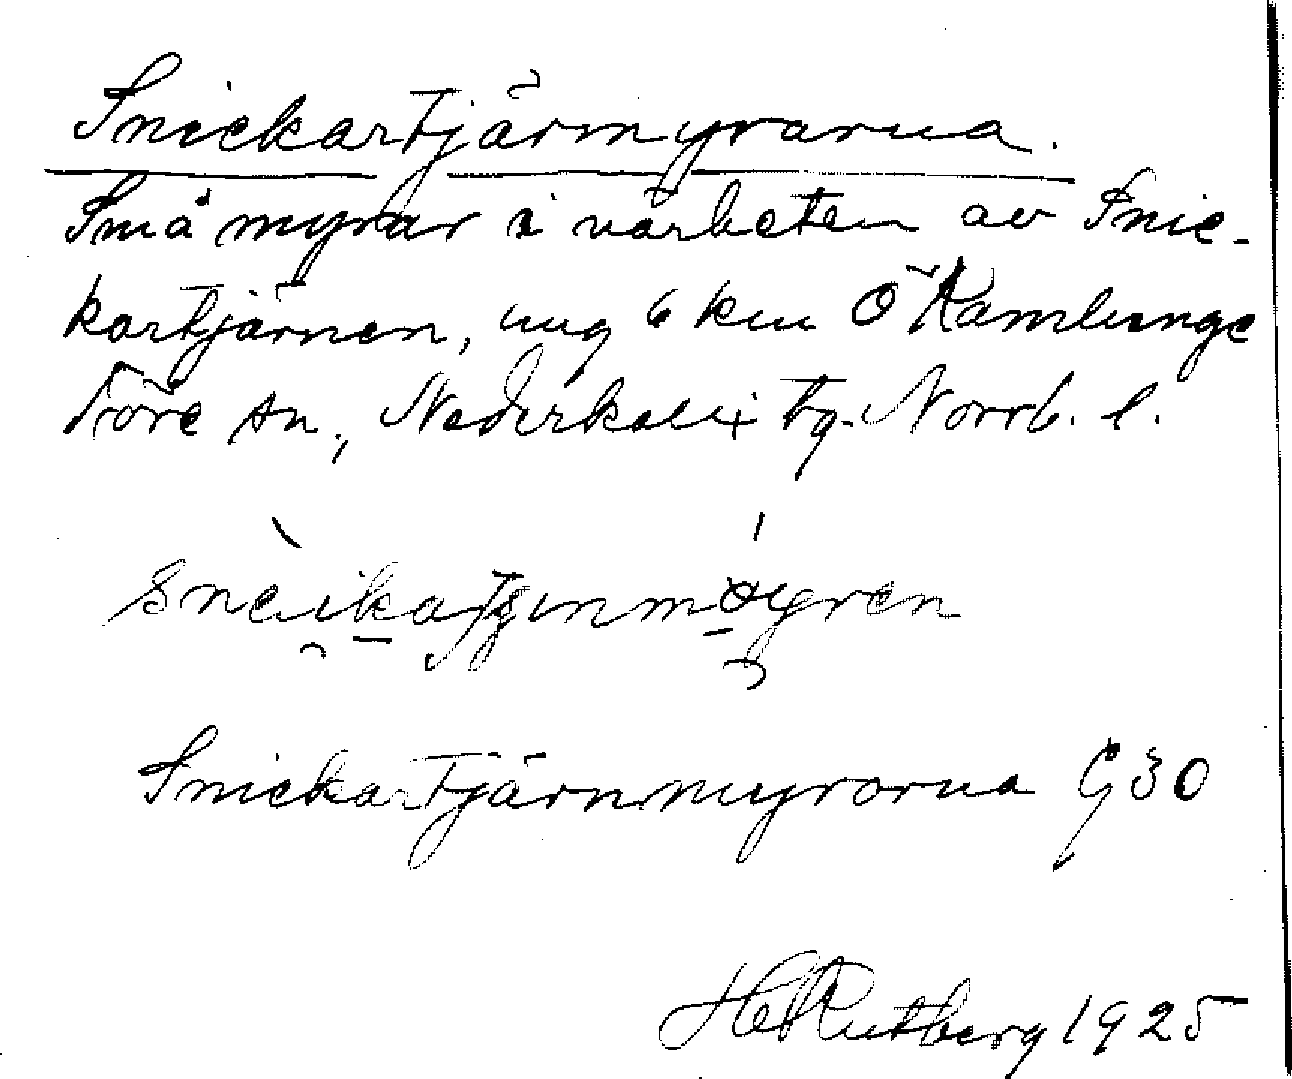 Snickartjärmyrarna.
Små myrar i närheten av Snic-
kartjärnen, ung 6 km Ö Kamlunge
Töre sn, Nederkalix tg. Norrb. l.
Snickartjärnmyrorna G30
H Rutberg 1925